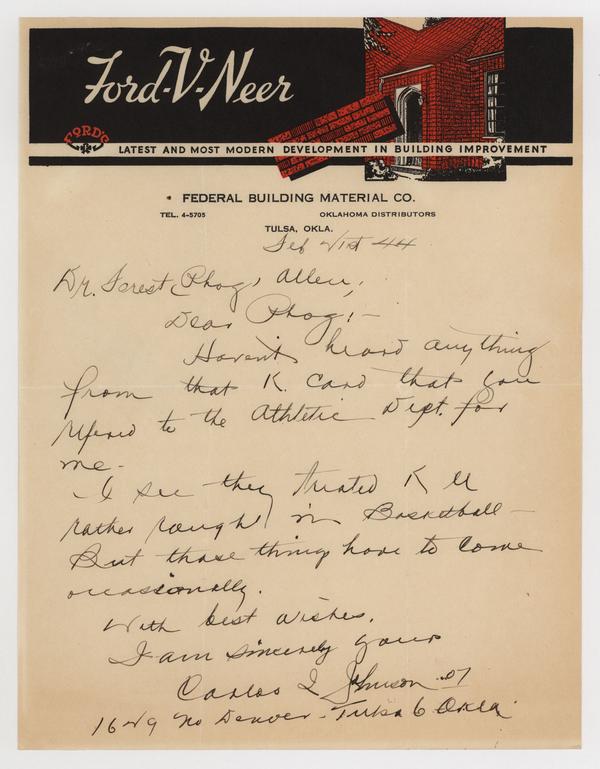 Ford-V-Neer
FORD'S
LATEST AND MOST MODERN DEVELOPMENT IN BUILDING IMPROVEMENT
FEDERAL BUILDING MATERIAL CO.
TEL. 4-5705 OKLAHOMA DISTRIBUTORS
TULSA, OKLA.
Feb 21st 44
Dr. Forest "Phog" Allen,
Dear Phog:-
Havent heard anything
from that K. Card that you
refered to the Athletic Dept. for
me-
I see they treated K U
rather rough in Basketball-
But those things have to come
occasionally.
With best wishes,
I am sincerely yours
Carlos I Johnson 07
1629 No Denver- Tulsa 6 Okla.